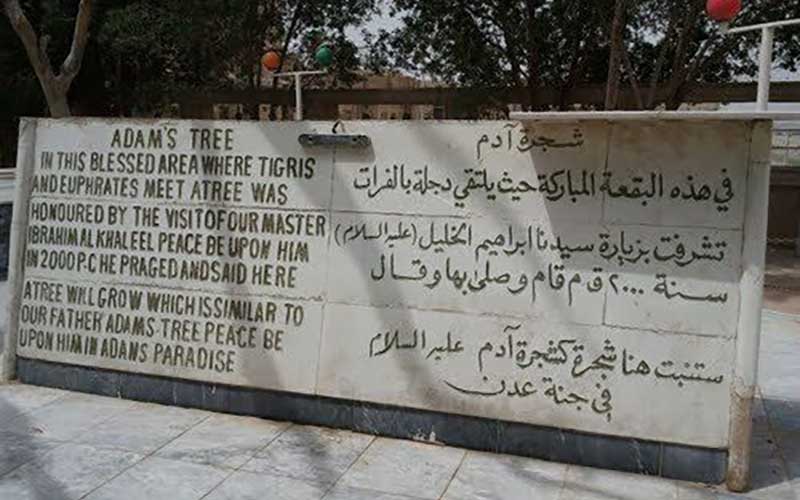 ADAM'S TREE
IN THIS BLESSED AREA WHERE TIGRIS
AND EUPHRATES MEET ATREE WAS
HONOURED BY THE VISIT OF OUR MASTER
IBRAHIM AL KHALEEL PEACE BE UPON HIM
IN 2000 P.C HE PRAGED AND SAID HERE
ATREE WILL GROW WHICH IS SIMILAR TO
OUR FATHER ADAMS-TREE PEACE BE
UPON HIM IN ADANS PARADISE
شجرة آدم
في هذه البقعة المباركة حيث يلتقي دجلة بالفرات
تشرفت بزيارة سيدنا ابراهيم الخليل (عليه السلام)
سنة ٢٠٠٠ ق م قام وصلى بها وقال
ستنبت هنا شجرة كشجرة آدم عليه السلام
في جنة عدن